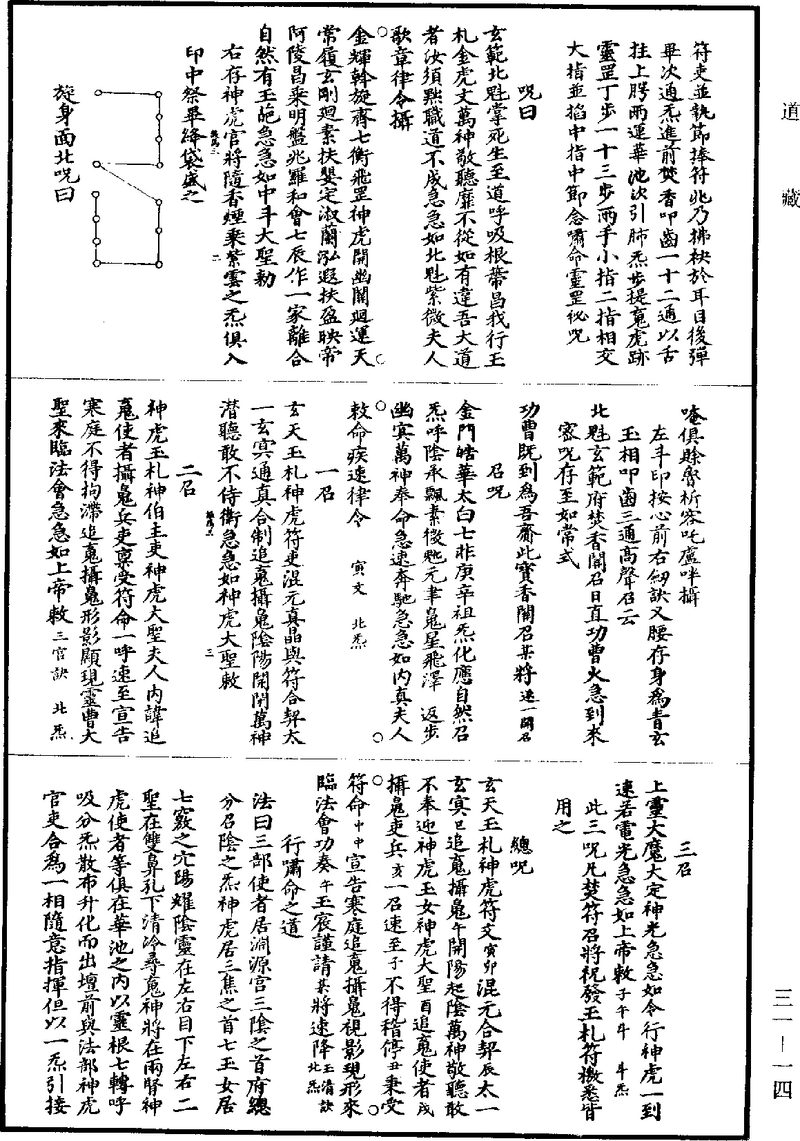 道藏
符吏並執節捧符兆乃拂袂於耳目後彈
畢次通炁進前焚香叩齒一十二通以舌
拄上腭兩運華池次引肺炁步提䰟虎跡
靈罡丁步一十三步兩手小指二指相交
大指並掐中指中節念嘯命靈罡祕咒
咒曰
玄範北魁掌死生至道呼吸根蔕昌我行玉
札金虎文萬神敬聽靡不從如有違吾大道
者汝須黜職道不成急急如北魁紫微夫人
歌章律令攝
金輝斡旋齊七衡飛罡神虎開幽關廻運天
常履玄剛廻素扶嬰定淑蘭泓遐扶盈映帝
阿陵昌乘明盤兆羅和會七辰作一家離合
自然有玉葩急急如中斗大聖勅
右存神虎官將隨香煙乘紫雲之炁俱入
印中祭畢絳袋盛之
旋身面北咒曰
唵俱賒魯析容吒盧吽攝
左斗印按心前右劒訣叉腰存身為青玄
玉相叩齒三通高聲召云
北魁玄範府焚香開召日直功曹火急到來
密咒存至如常式
功曹既到為吾齎此寶香開召某將速一開召
召咒
金門皓華太白七非庚辛祖炁化應自然召
炁呼陰承飄素微魁元聿䰟星飛澤返步
幽冥萬神奉命急速奔馳急急如內真夫人
敕命疾速律令 寅文 北炁
一召
玄天玉札神虎符吏混元真晶與符合契太
一玄冥通真合制追䰟攝鬼陰陽開閉萬神
潛聽敢不侍衛急急如神虎大聖敕
二召
神虎玉札神伯主吏神虎大聖夫人內諱追
䰟使者攝鬼兵吏稟受符命一呼速至宣告
寒庭不得拘滯追䰟攝鬼形影顯現靈曹大
聖來臨法會急急如上帝敕三官訣 北炁
三召
上靈大魔大定神光急急如令行神虎一到
速若電光急急如上帝敕子午斗 斗炁
此三咒凡焚符召將祝發玉札符檄悉皆
用之
總咒
玄天玉札神虎符文寅卯混元合契辰太一
玄冥巳追䰟攝鬼午開陽起陰萬神敬聽敢
不奉迎神虎玉女神虎大聖酉追䰟使者戌
攝鬼吏兵亥一召速至子不得稽停丑秉受
符命中中宣告寒庭追䰟攝鬼視影現形來
臨法會功奏午玉宸謹請某將速降玉清訣北炁
行嘯命之道
法曰三部使者居淵源宮三陰之首府總
分召陰之炁神虎居三焦之首七玉女居
七竅之穴陽耀陰靈在左右目下左右二
聖在雙鼻孔下清冷尋䰟神將在兩腎神
虎使者等俱在華池之內以靈根七轉呼
吸分炁散布升化而出壇前與法部神虎
官吏合為一相隨意指揮但以一炁引接
三一-一四